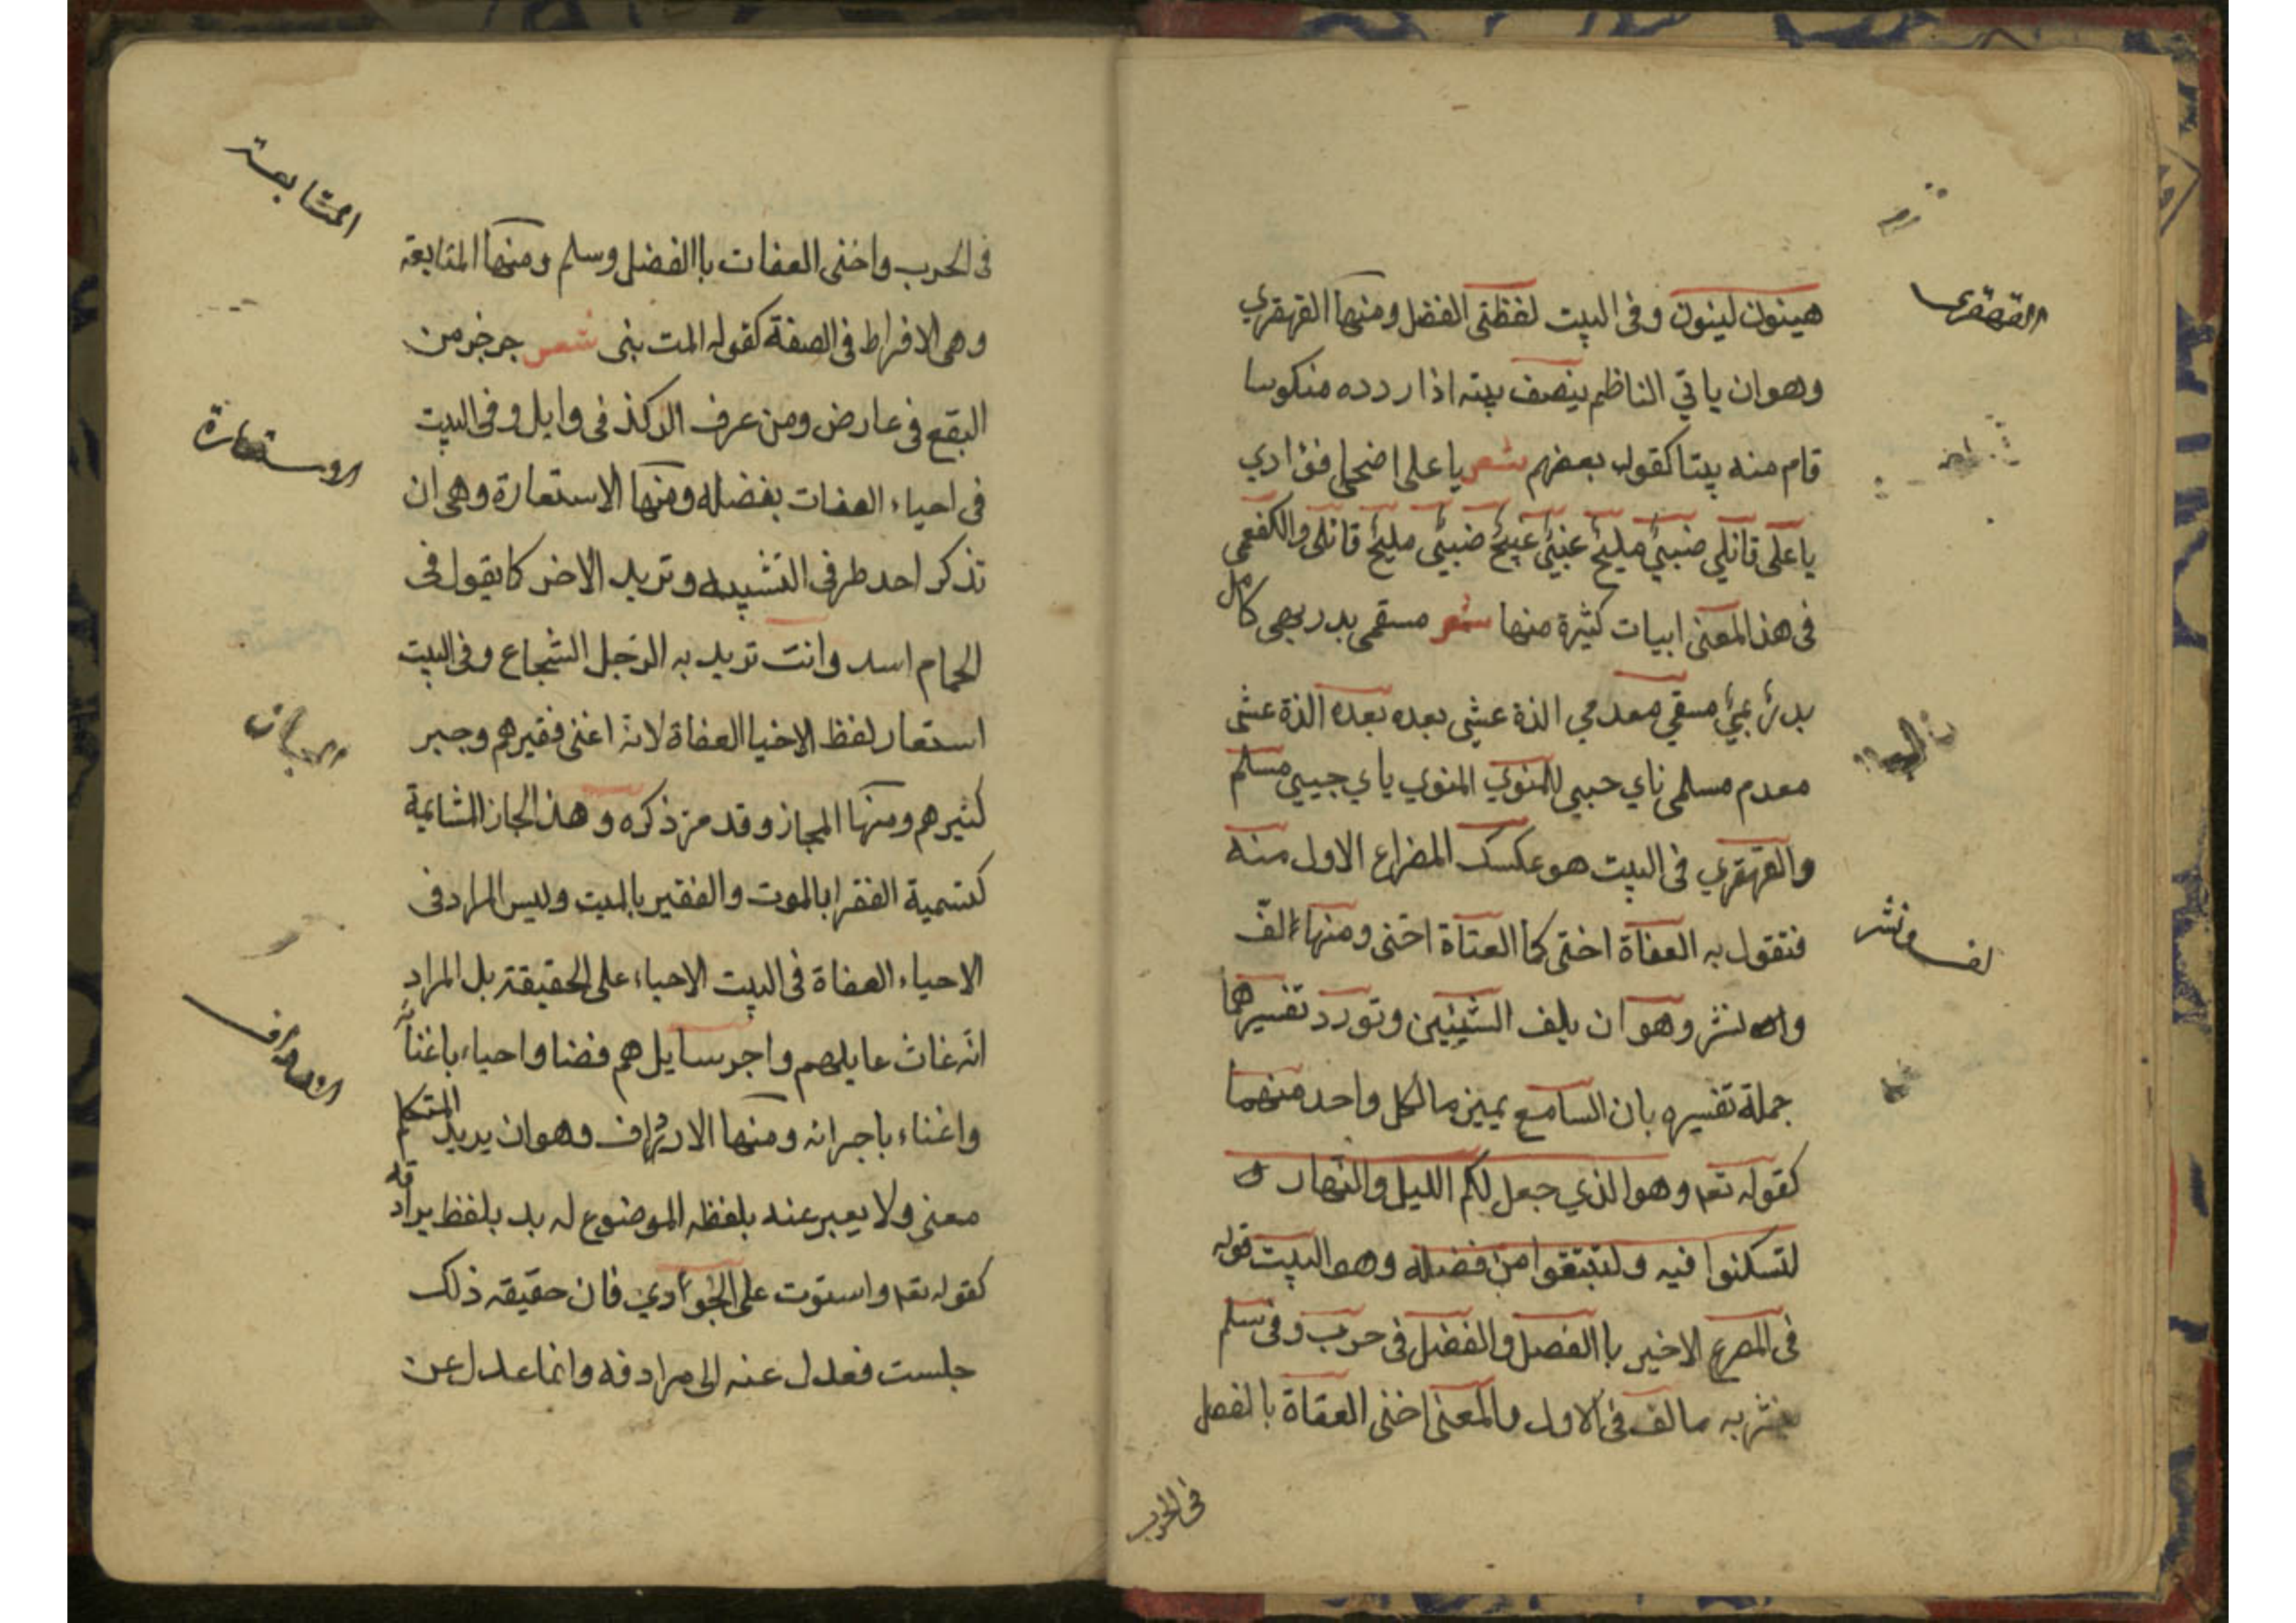 القهقرى
هينون لينون وفى البيت لفظتى الفضل ومنها القهقري
وهو ان ياتي الناظم بنصف بيته اذا ردده منكوسا
قام منه بيتا كقوله بعضهم شعر يا على اضحلي فؤادي
يا على قاتلي مليح مليح قاتلى والكفعمى
فى هذ المعنى ابيات كثيرة منها شعر مسقمى بدر كامل
بدر مسقمي معدمي الذة عشى بعده بعده الذة عشى
معدم مسلمى ناي حبيبى المنوي المنوي ياي جيبى مسلم
والقهقري فى البيت هو عكسك المضراع الاول منه
لف ونشر
فتقول به العفاة اختى كما العتاة اختى ومنها الف
والنشر وهو ان يلف الشيئين وتورد تفسيرهما
جملة تفسيره بان السامع يميز ما لكل واحد منهما
كقوله تعه وهو الذي جعل لكم الليل والنهار و
لتسكنوا فيه ولتبتقوا من فضله وهو البيت قوله
فى المصرع الاخير باالفصل والفضل فى حرب وفى سلم
نشر به ما لف فى الاول والمعنى اخنى العقاة بالفصل
فى الحرب
المتابعة
فى الحرب واخنى العفات باالفضل وسلم ومنها المتابعة
وهى الافراط فى الصفة كقوله المت بنى شعر جرخر من
البقع فى عارض ومن عرف الركذ فى وايل وفى البيت
الاستعارة
فى احياء العفات بفضله ومنها الاستعارة وهى ان
تذكر احد طرفى التشبيه وتريد الاخر كا يقول فى
الحمام اسد وانت تريد به الرجل الشجاع وفى البيت
استعار لفظ الاخيا العفاة لانه اغنى فقيرهم وجبر
كثيرهم ومنها المجاز وقد مر ذكره وهذ الجاز المشابهة
كتسمية الفقرا بالموت والفقير بالميت وليس المراد فى
الاحياء العفاة فى البيت الاحياء على الحقيقة بل المراد
انه غاث عايلهم واجر سايلهم فضنا واحياء باغنائه
الارداف
واغناء باجرانه ومنها الارداف وهو ان يريد المتكلم
معنى ولا يعبر عنه بلفظه الموضوع له بد بلفظ يرادفه
كقوله تعه واستوت على الجوادي فان حقيقه ذلك
جلست فعدل عنه الى مرادفه وانما عدل عن